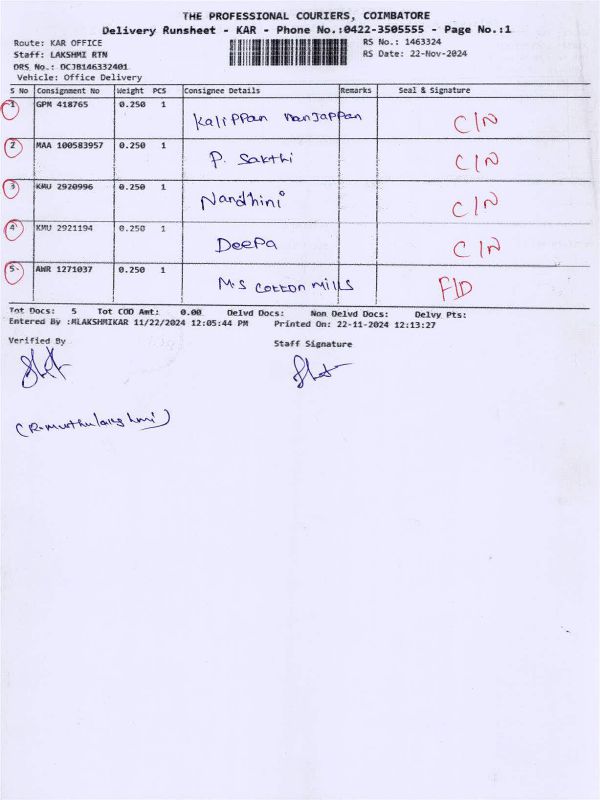 THE PROFESSIONAL COURIERS, COIMBATORE
Delivery Runsheet - KAR - Phone No.:0422-3505555 - Page No.:1
Route: KAR OFFICE RS No.: 1463324
Staff: LAKSHMI RTN RS Date: 22-Nov-2024
DRS No.: OCJB146332401
Vehicle: Office Delivery
S No Consignment No Weight PCS Consignee Details Remarks Seal & Signature
1 GPM 418765 0.250 1 Kalippan Nanjappan C/N
2 MAA 100583957 0.250 1 P. Sakthi C/N
3 KMU 2920996 0.250 1 Nandhini C/N
4 KMU 2921194 0.250 1 Deepa C/N
5 AWR 1271037 0.250 1 M.S Cotton Mills F/D
Tot Docs: 5 Tot COD Amt: 0.00 Delvd Docs: Non Delvd Docs: Delvy Pts:
Entered By :MLAKSHMIKAR 11/22/2024 12:05:44 PM Printed On: 22-11-2024 12:13:27
Verified By Staff Signature